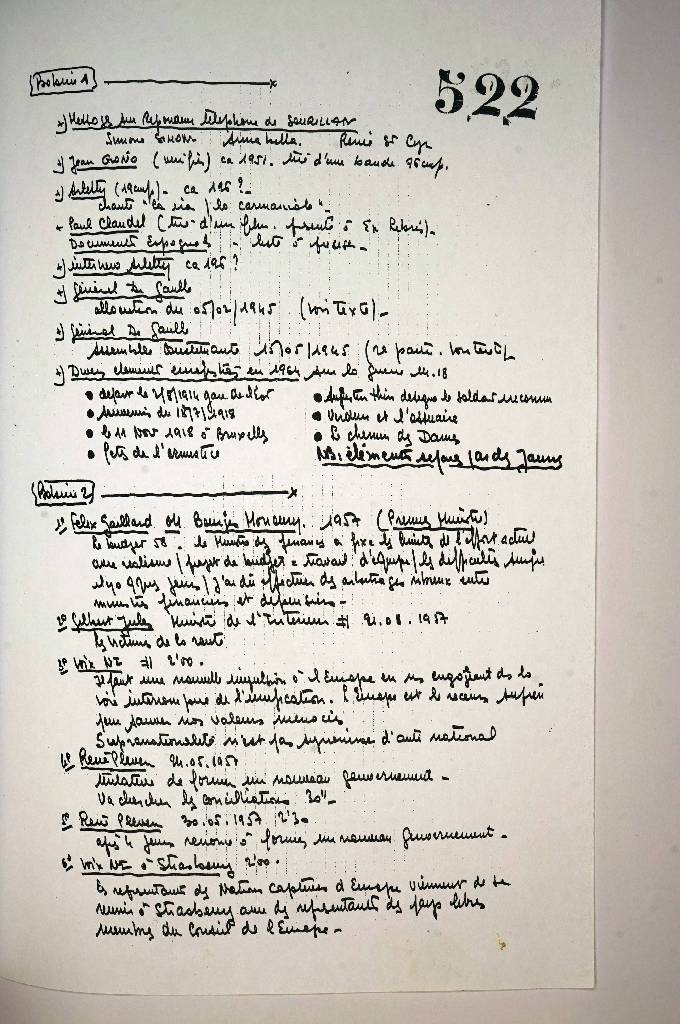 522
Bobine 1
Messages sur Repondeur telephone de
Simone SIMON Annabella. René St Cyr
Jean GIONO (verifier) ca 1951. tiré d'une bande 96cm/s.
Arletty (19cm/s) - ca 196 ?
chante "ca ira / la carmagnole" -
Paul Claudel (tiré d'un film. presenté à
Documents Espagnols - liste à
interview Arletty ca 196 ?
Général De Gaulle
allocution du 05/02/1945 (voir Texte) -
Général De Gaulle
Assemblée Constituante 15/05/1945 (1e partie. voir texte)
Divers elements enregistrés en 1964 sur la guerre 14.18
● depart le 2/8/1914 gare de l'Est
● souvenir du 18/7/1918
● le 11 Nov 1918 à Bruxelles
● fete de l'armistice
● Augustin thin designe le soldat inconnu
● Verdun et l'ossuaire
● Le chemin des Dames
NB: éléments separes par des Jaunes
Bobine 2
1° Felix Gaillard 1957 (Premier Ministre)
le budget 58. le Ministre des finances a fixé les limites de l'effort actuel
avec realisme / projet de budget = travail d'equipe / les difficultés
il y a qques jours / j'ai dû effectuer des arbitrages entre
ministres financiers et depensiers -
2° Gilbert Jules Ministre de l'Interieur 21.08.1957
les victimes de la route
3° Voix NI 2'00.
Il faut une nouvelle impulsion à l'Europe en nous engageant ds la
voie interrompue de l'unification. L'Europe est le recours
pour sauver nos valeurs menacés
Supranationalité n'est pas synonime d'anti national
4° René Pleven 24.05.1957
tentative de former un nouveau gouvernement -
Va chercher les conciliations 30" -
5° René Pleven 30.05.1957 2'30
après 4 jours renonce à former un nouveau gouvernement -
6° Voix NI à Strasbourg 2'00.
Les representants des Nations captives d'Europe viennent de se
reunir à Strasbourg avec des representants des pays libres
membres du Conseil de l'Europe -